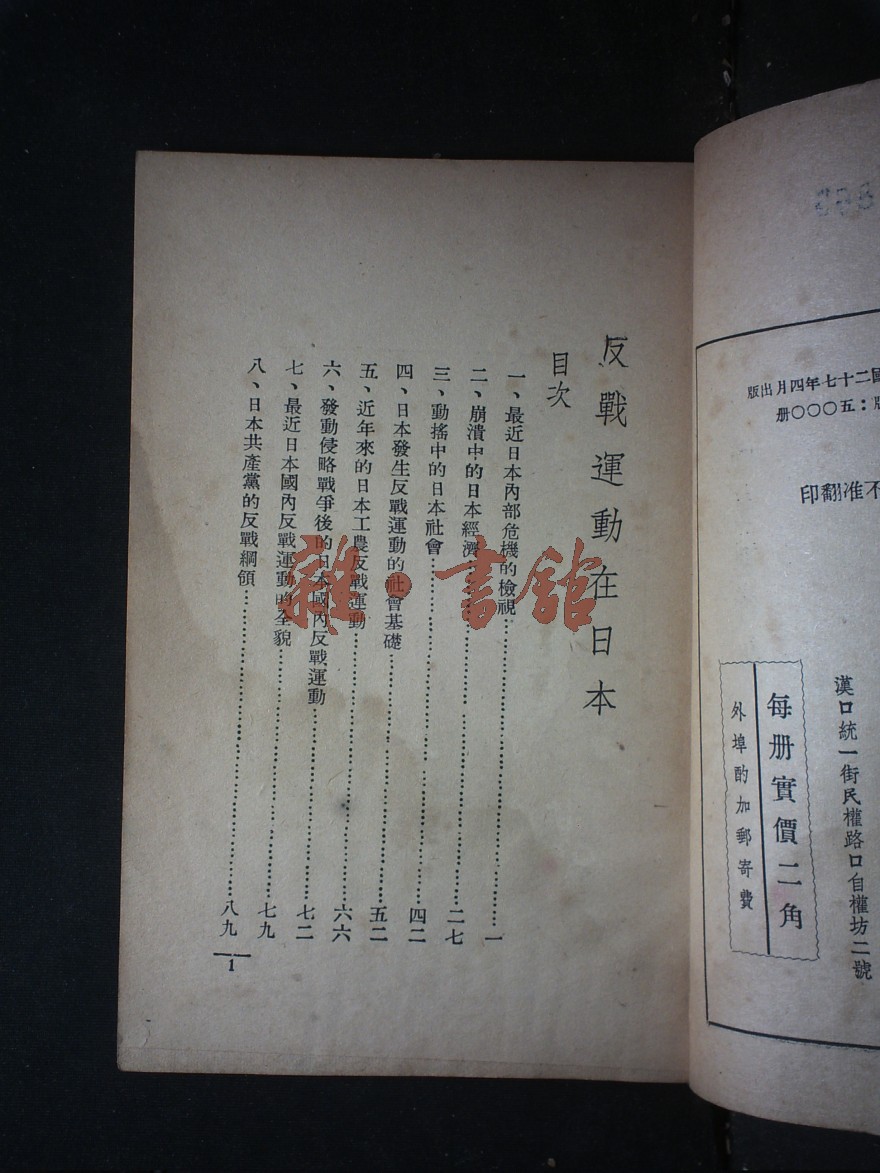 國二十七年四月出版
版：五〇〇〇册
不准翻印
漢口統一街民權路口自權坊二號
每册實價二角
外埠酌加郵寄費
反戰運動在日本
目次
一、最近日本內部危機的檢視……一
二、崩潰中的日本經濟……二七
三、動搖中的日本社會……四二
四、日本發生反戰運動的社會基礎……五二
五、近年來的日本工農反戰運動……六六
六、發動侵略戰爭後的日本國內反戰運動……七二
七、最近日本國內反戰運動的全貌……七九
八、日本共產黨的反戰綱領……八九
1
雜·書館